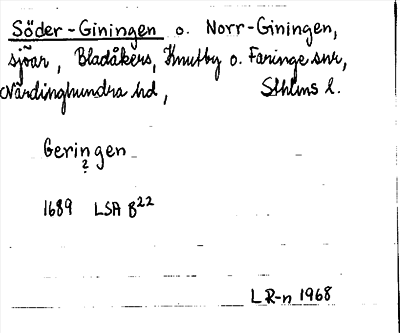 Söder-Giningen o. Norr-Giningen,
sjöar, Bladåkers, Knutby o. Faringe snr,
Närdinghundra hd, Sthlms l.
Geringen
?
1689 LSA B22
LR-n 1968